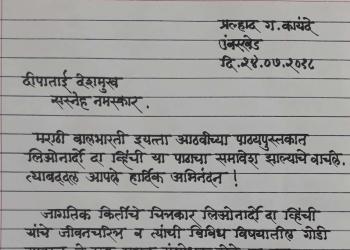 प्रल्हाद ग. कायंदे
दि. २४.०७.२०१८
दीपाताई देशमुख
सस्नेह नमस्कार.
मराठी बालभारती इयत्ता आठवीच्या पाठ्यपुस्तकात
लिओनार्दो दा व्हिंची या पाठाचा समावेश झाल्याचे वाचले.
त्याबद्दल आपले हार्दिक अभिनंदन !
जागतिक किर्तीचे चित्रकार लिओनार्दो दा व्हिंची
यांचे जीवनचरित्र व त्यांची विविध विषयातील गोडी